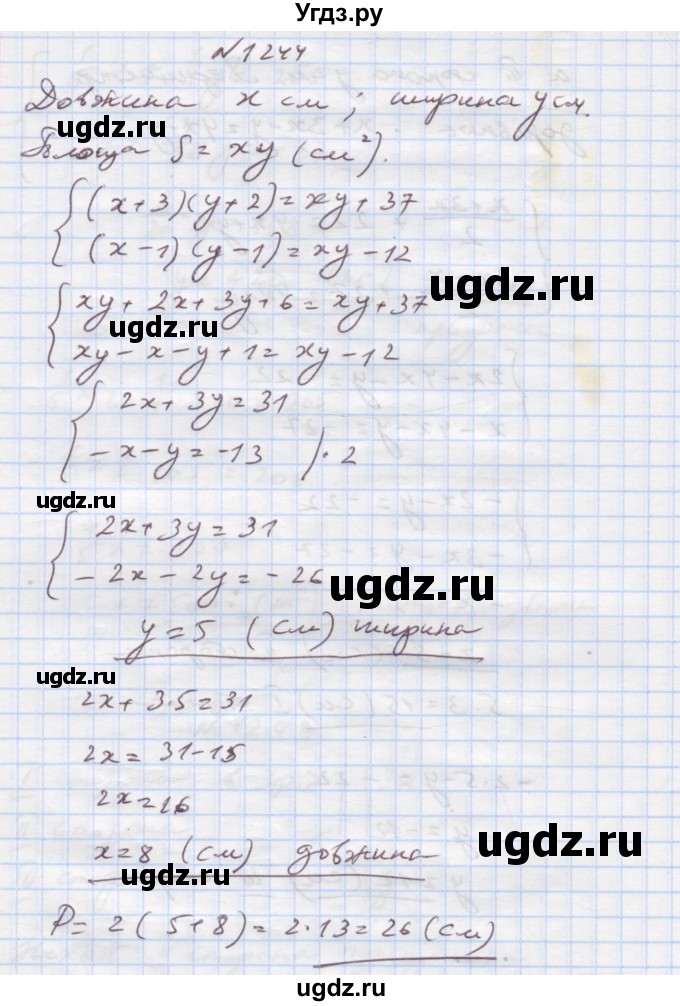 Угдз.ру
N 1244
Довжина x см; ширина y см.
ugdz.ru
Площа S = xy (см²).
(x+3)(y+2) = xy + 37
(x-1)(y-1) = xy - 12
ugdz.ru
xy + 2x + 3y + 6 = xy + 37
ugdz.ru
xy - x - y + 1 = xy - 12
2x + 3y = 31
-x - y = -13 | · 2
ugdz.ru
2x + 3y = 31
-2x - 2y = -26
ugdz.ru
y = 5 (см) ширина
ugdz.ru
2x + 3·5 = 31
2x = 31 - 15
2x = 16
ugdz.ru
x = 8 (см) довжина
ugdz.ru
P = 2(5+8) = 2·13 = 26 (см).
ugdz.ru